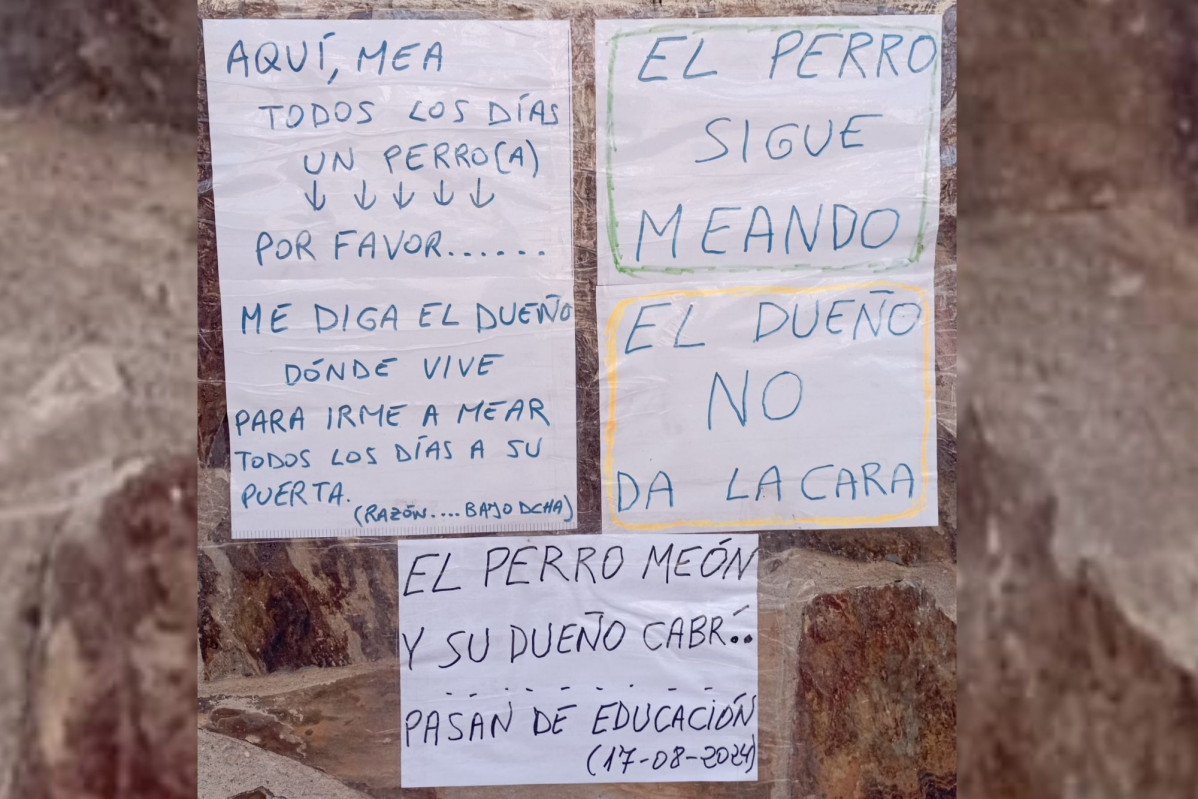 AQUÍ, MEA
TODOS LOS DÍAS
UN PERRO(A)
↓ ↓ ↓ ↓ ↓
POR FAVOR......
ME DIGA EL DUEÑO
DÓNDE VIVE
PARA IRME A MEAR
TODOS LOS DÍAS A SU
PUERTA.
(RAZÓN.... BAJO DCHA)
EL PERRO
SIGUE
MEANDO
EL DUEÑO
NO
DA LA CARA
EL PERRO MEÓN
Y SU DUEÑO CABRÍ..
PASAN DE EDUCACIÓN
(17-08-2024)